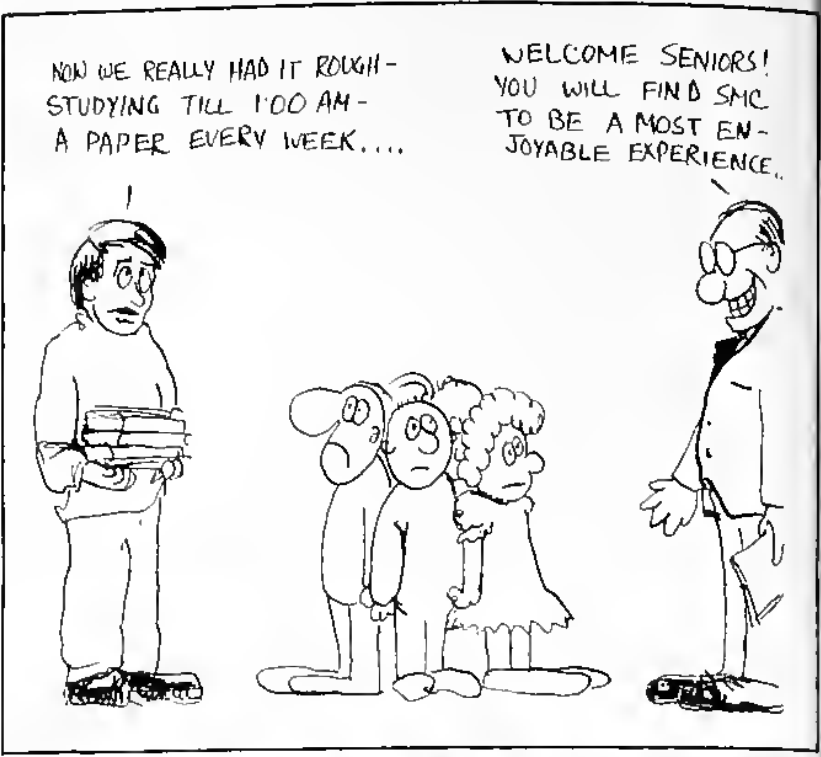 NOW WE REALLY HAD IT ROUGH-
STUDYING TILL 1:00 AM-
A PAPER EVERY WEEK....
WELCOME SENIORS!
YOU WILL FIND SMC
TO BE A MOST EN-
JOYABLE EXPERIENCE..